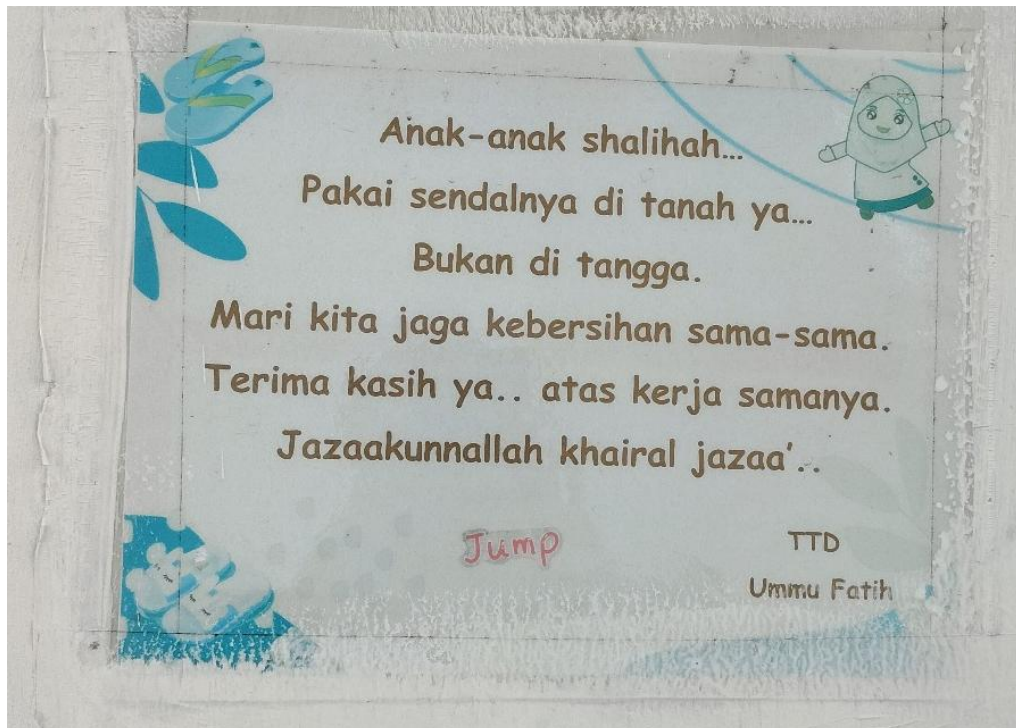 Anak-anak shalihah...
Pakai sendalnya di tanah ya...
Bukan di tangga.
Mari kita jaga kebersihan sama-sama.
Terima kasih ya.. atas kerja samanya.
Jazaakunnallah khairal jazaa'..
Jump
TTD
Ummu Fatih